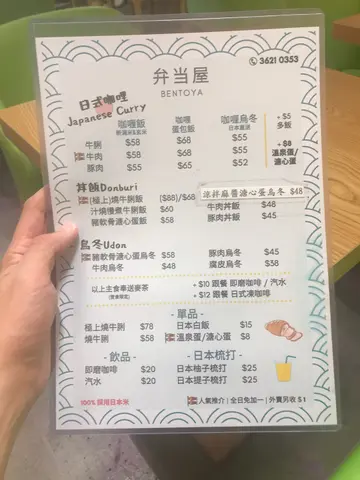 弁当屋
BENTOYA
3621 0353
日式咖喱
Japanese Curry
咖喱飯
咖喱蛋包飯
咖喱烏冬
+$5 多飯
牛脷 $58 $68 $55
牛肉 $58 $68 $55
豚肉 $55 $65 $52
+$8 溫泉蛋/溏心蛋
丼飯Donburi
涼拌麻醬溏心蛋烏冬 $48
(極上)燒牛脷飯 ($88)/$68
牛肉丼飯 $48
汁燒慢煮牛脷飯 $60
豚肉丼飯 $45
豬軟骨溏心蛋飯 $58
烏冬Udon
豬軟骨溏心蛋烏冬 $58
豚肉烏冬 $45
牛肉烏冬 $48
腐皮烏冬 $58
以上主食奉送麥茶
+$10 跟餐 即磨咖啡 / 汽水
+$12 跟餐 日式凍咖啡
- 單品 -
極上燒牛脷 $78
日本白飯 $15
燒牛脷 $58
溫泉蛋/溏心蛋 $8
- 飲品 -
- 日本梳打 -
即磨咖啡 $20
日本柚子梳打 $25
汽水 $20
日本提子梳打 $25
100% 採用日本米
人氣推介 | 全日免加一 | 外賣另收 $1